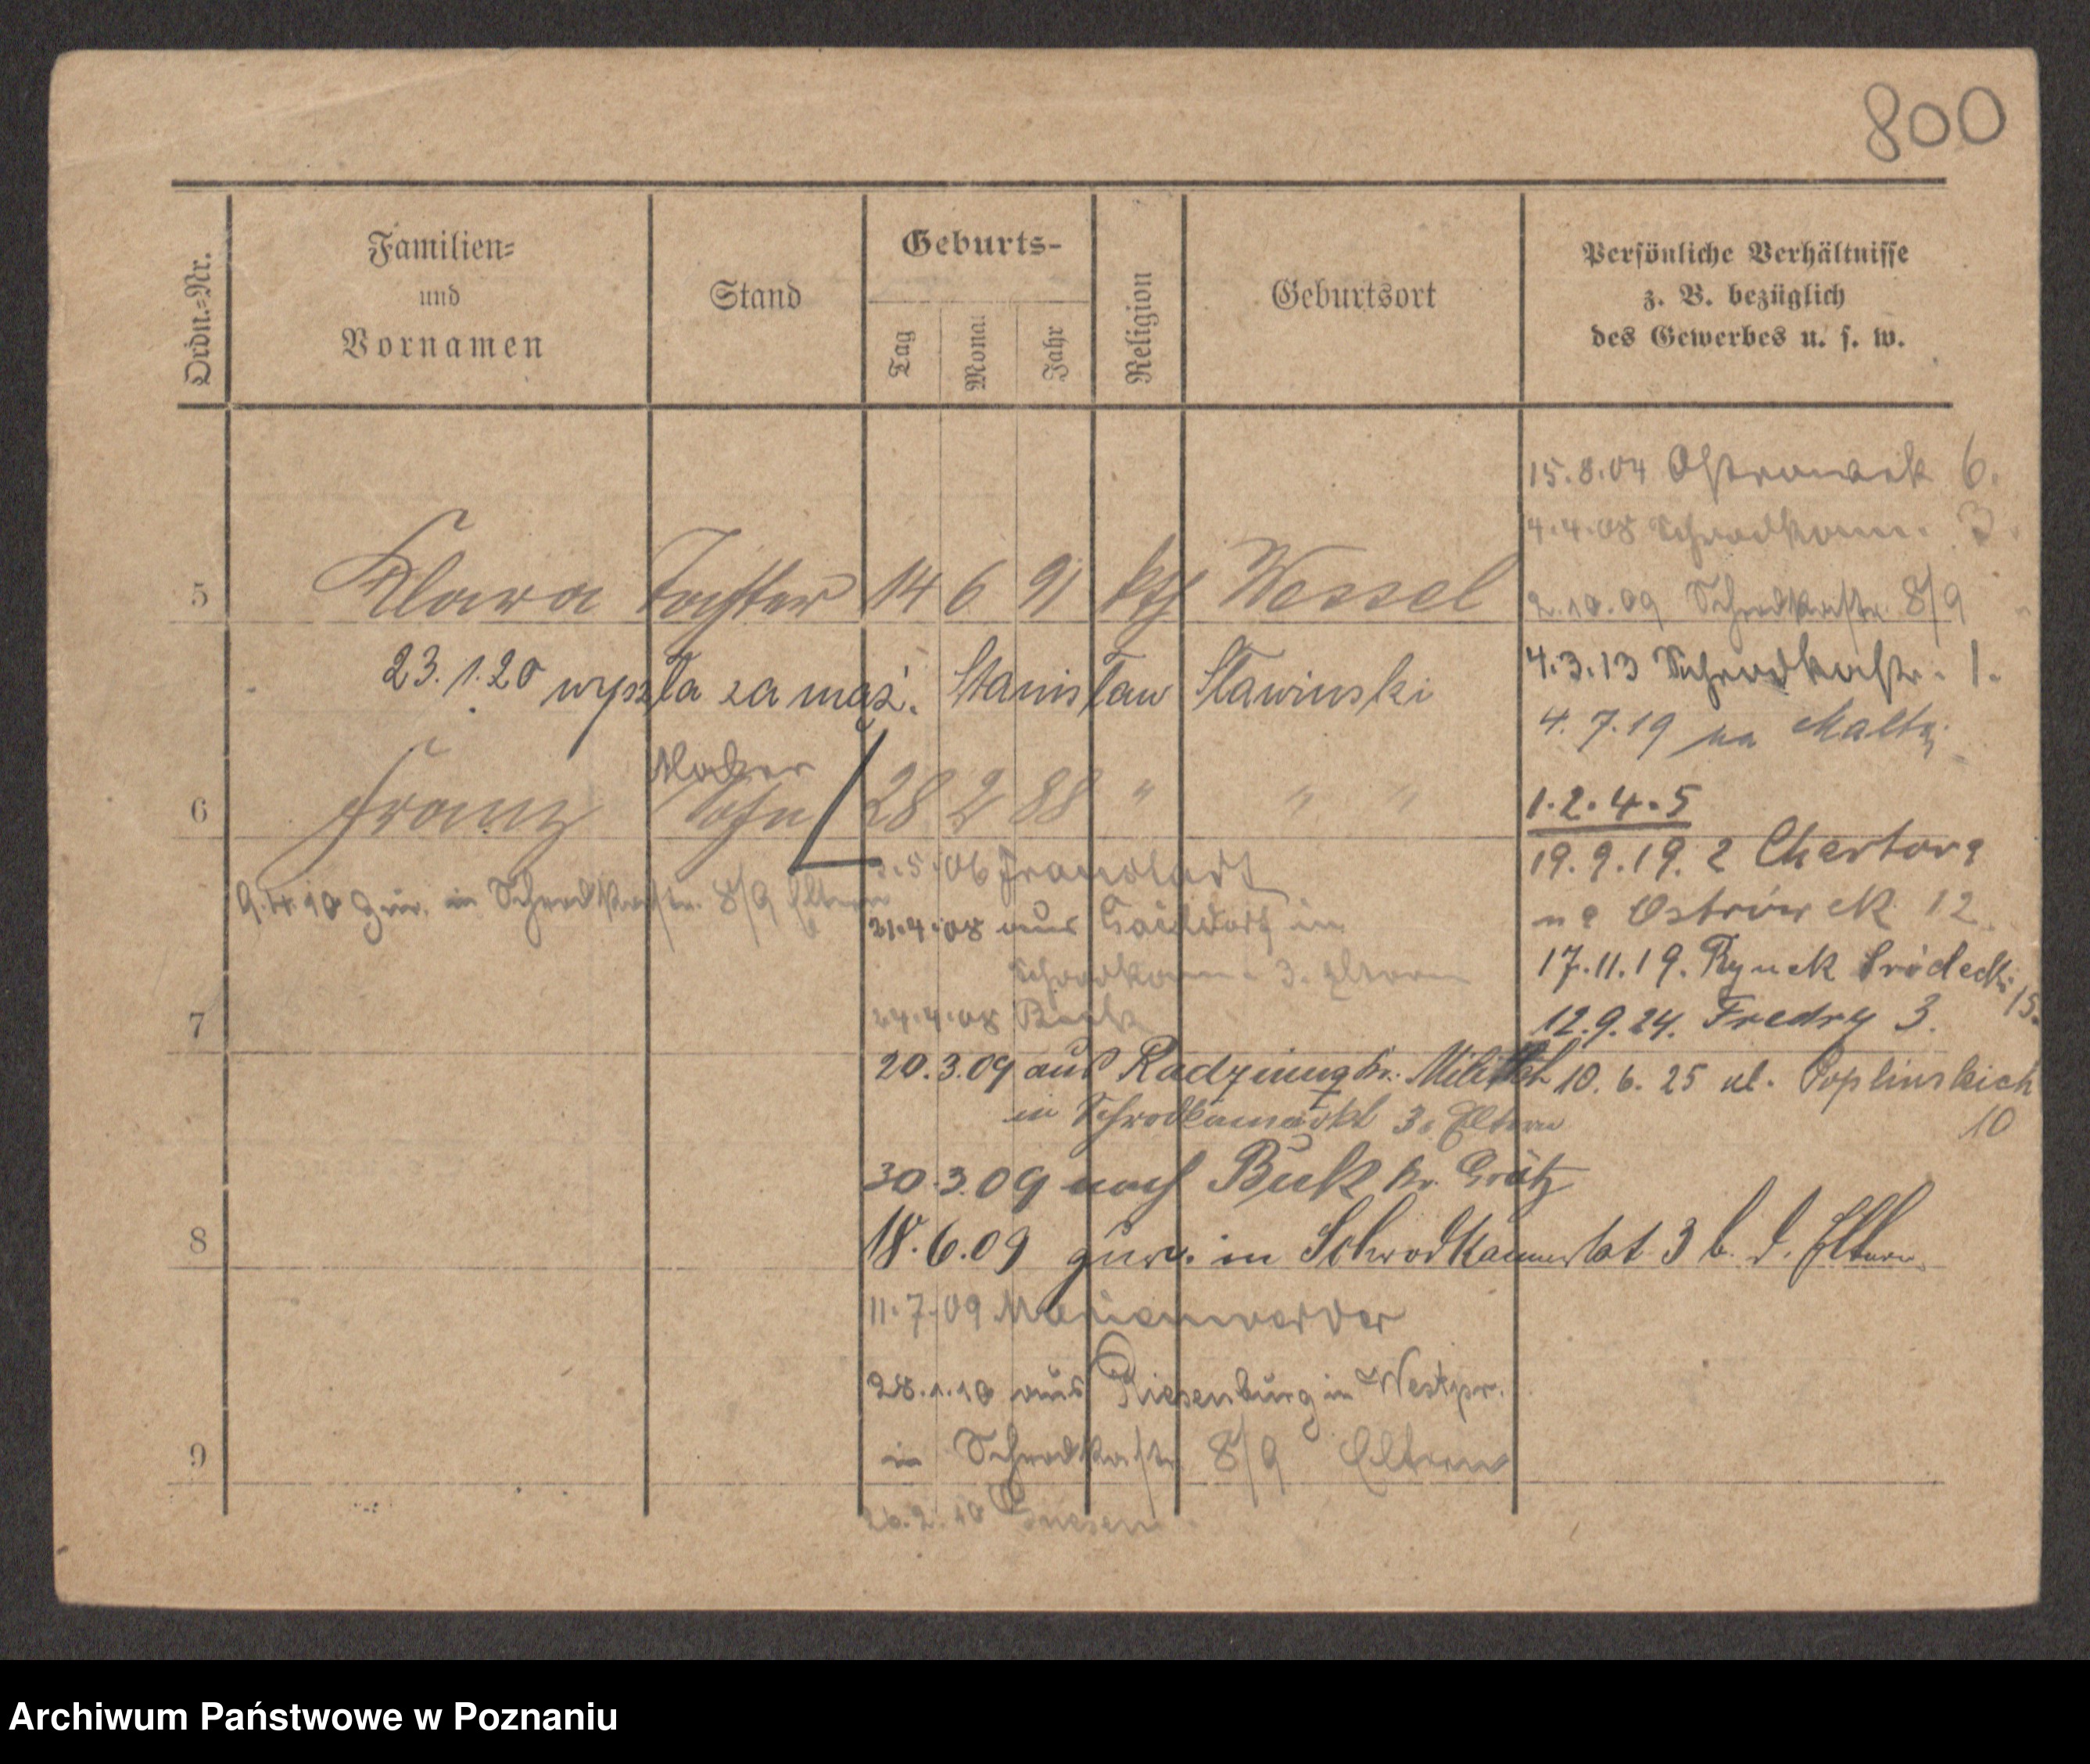 800
Ordn.=Nr.
Familien=
und
Vornamen
Stand
Geburts-
Tag
Monat
Jahr
Religion
Geburtsort
Persönliche Verhältnisse
z. B. bezüglich
des Gewerbes u. s. w.
15.8.04 Ostrowek 6.
4.4.08 3.
5 Klara Tochter 14 6 91 kth Wessel
2.10.09 Schrodkastr. 8/9
23.1.20 wyszła za mąż. Stanisław Sławinski
4.3.13 Schrodkastr. 1.
4.7.19 na Maltę
6 Franz Sohn 28 2 88 " " "
1.2.4.5
19.9.19. 2
na Ostrówek 12.
9.4.10 zur. in Schrodkastr. 8/9 Eltern
5.06 Fraustadt
21.4.08 aus in
3. Eltern
17.11.19. Rynek Śródecki 15.
7
24.4.08 Buk
12.9.24. Fredry 3.
20.3.09 aus Kr. Militsch
10.6.25 ul. Poplinskich
10
in Schrodkamarkt 3. Eltern
30.3.09 nach Buk Kr. Grätz
8
18.6.09 zur. in 3 b. d. Eltern
11.7.09 Marienwerder
28.1.10 aus Riesenburg in Westpr.
9
in Schrodkastr. 8/9 Eltern
26.2.10 Gnesen
Archiwum Państwowe w Poznaniu